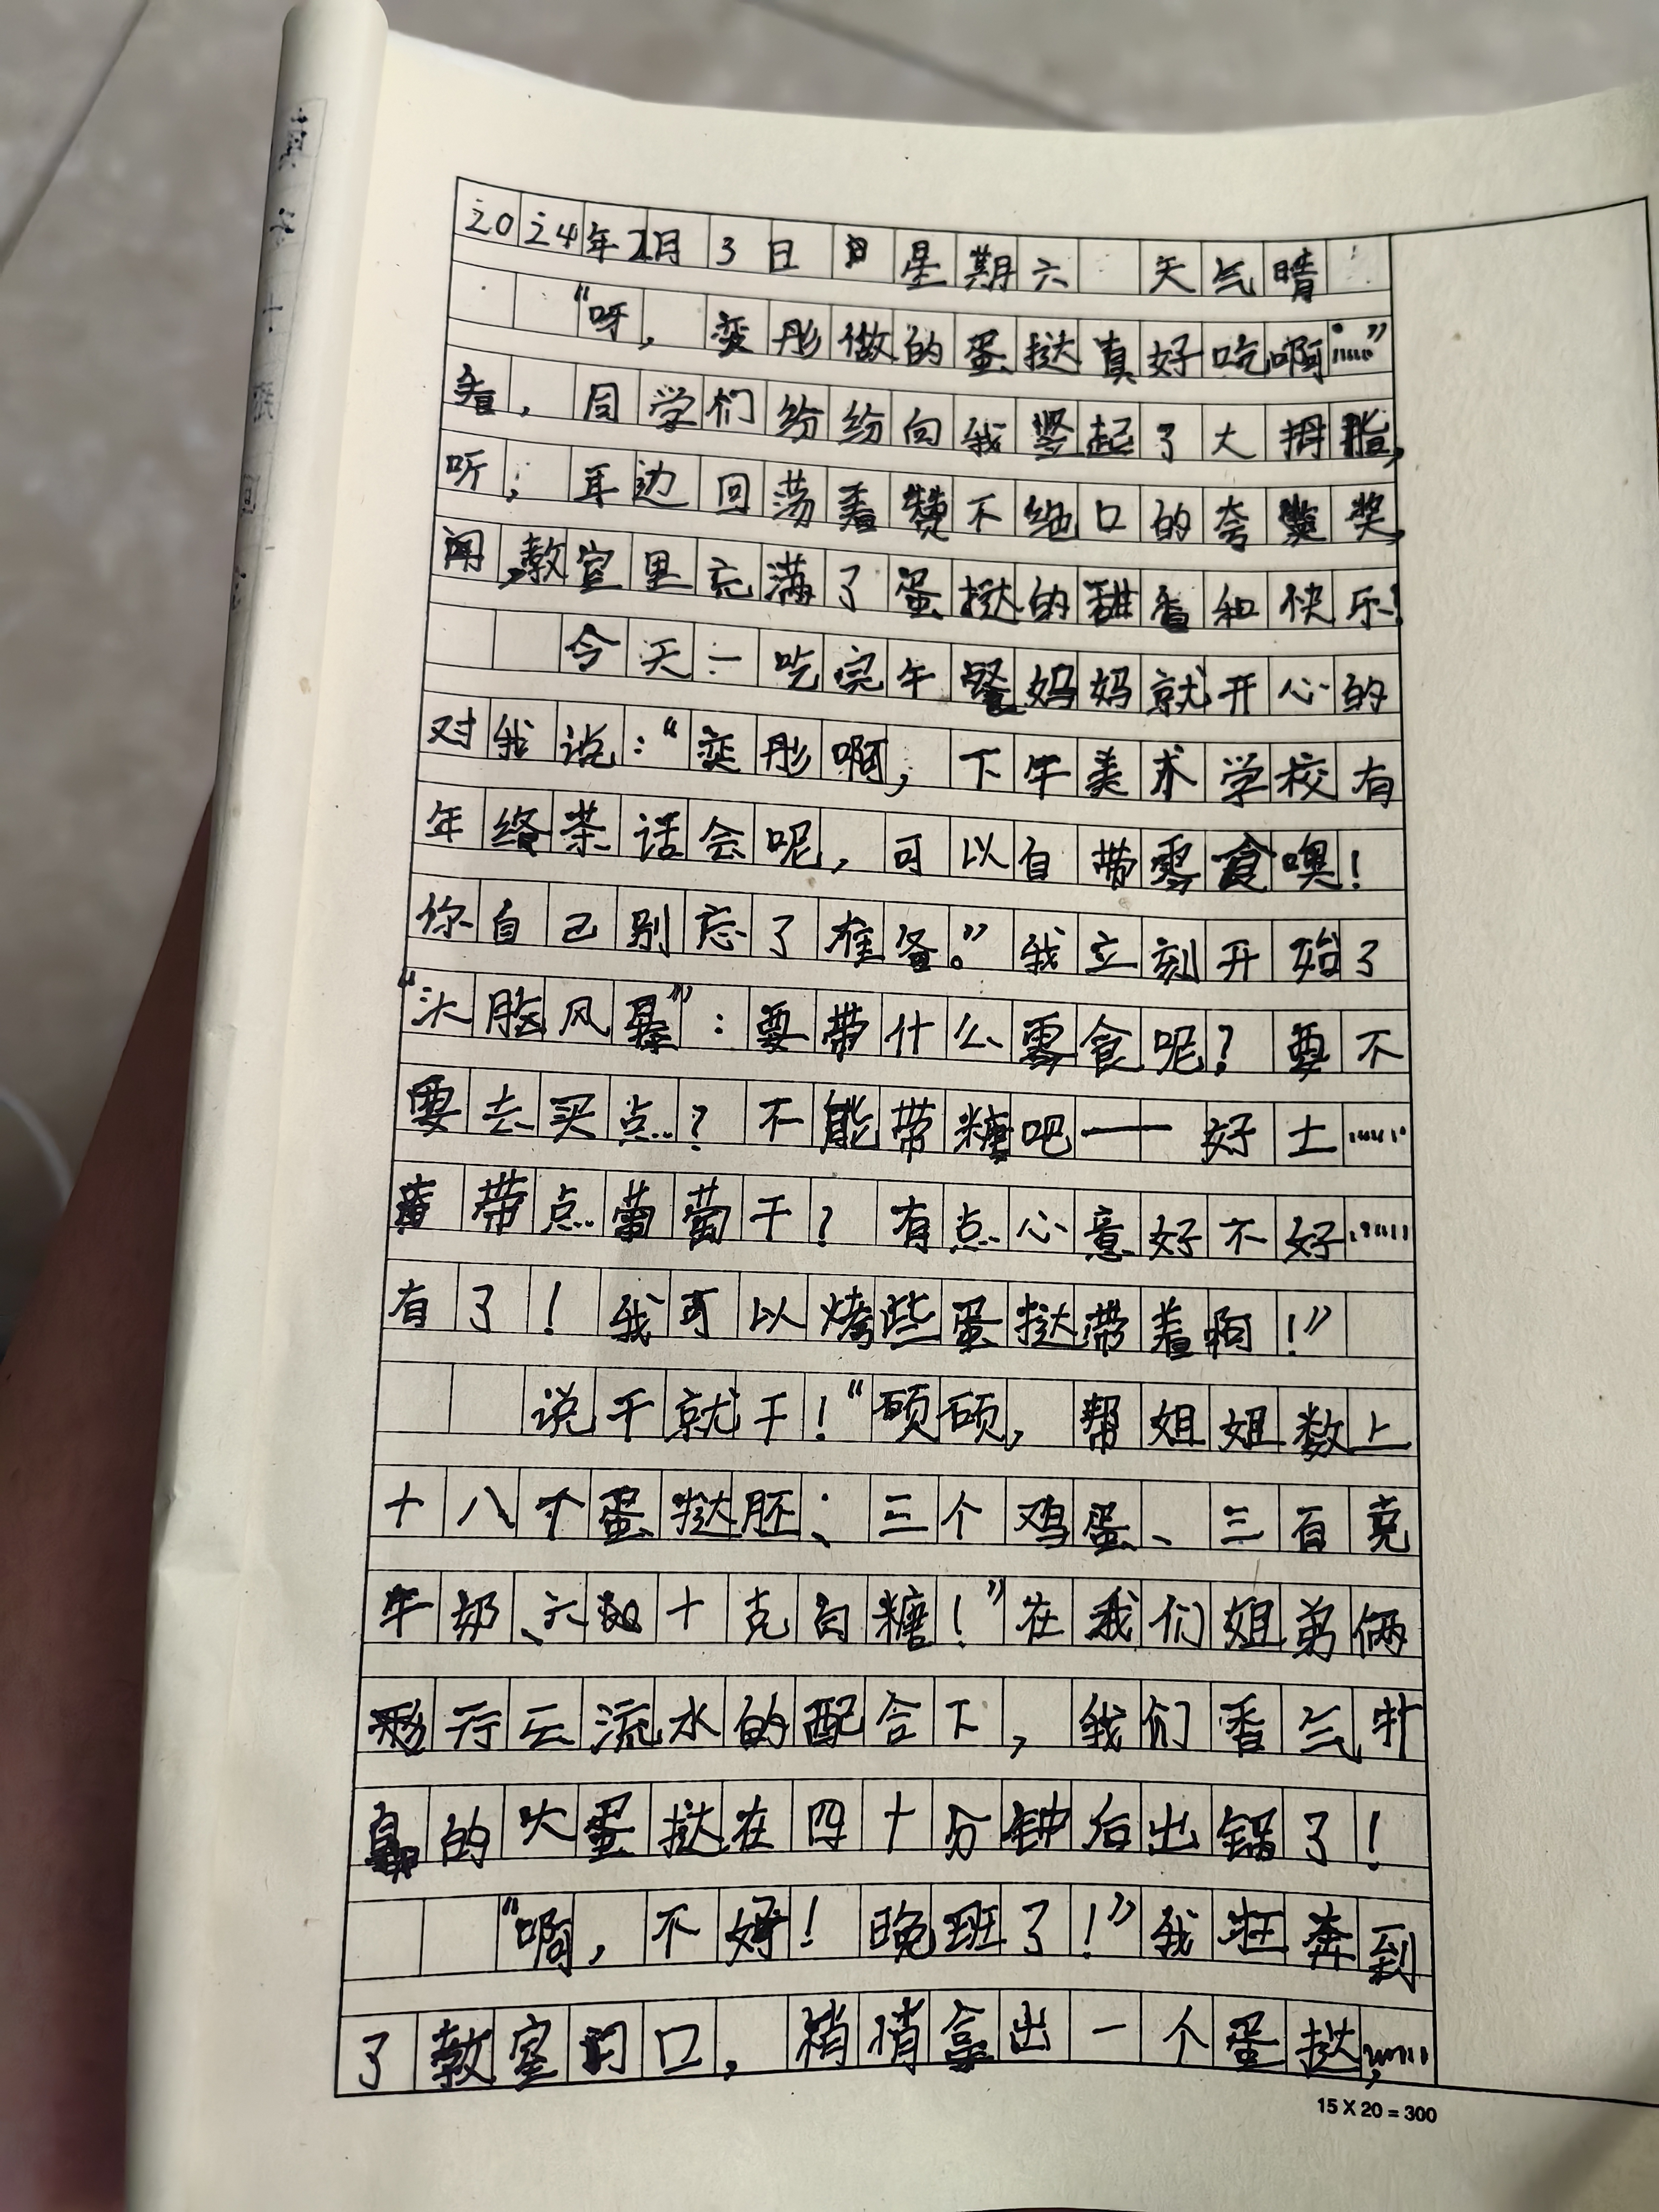 2024年2月3日 星期六 天气晴
“呀，奕彤做的蛋挞真好吃啊……”
看，同学们纷纷向我竖起了大拇指，
听，耳边回荡着赞不绝口的夸奖，
闻，教室里充满了蛋挞的甜香和快乐！
今天一吃完午餐妈妈就开心的
对我说：“奕彤啊，下午美术学校有
年终茶话会呢，可以自带零食噢！
你自己别忘了准备。”我立刻开始了
“头脑风暴”：要带什么零食呢？要不
要去买点？不能带糖吧——好土……
带点葡萄干？有点心意好不好……
有了！我可以烤些蛋挞带着啊！”
说干就干！“硕硕，帮姐姐数上
十八个蛋挞胚、三个鸡蛋、三百克
牛奶、六十克白糖！”在我们姐弟俩
行云流水的配合下，我们香气扑
鼻的大蛋挞在四十分钟后出锅了！
“啊，不好！晚班了！”我狂奔到
了教室门口，悄悄拿出一个蛋挞，……
15 X 20 = 300